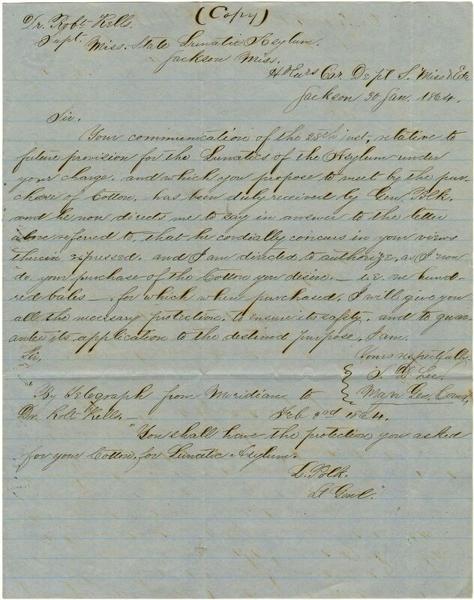 (Copy)
Dr. Robt Kells.
Supt. Miss. State Lunatic Asylum.
Jackson Miss.
Hd Qurs Cav Dept S. Miss & E La
Jackson 30 Jan. 1864.
Sir.
Your communication of the 28th inst, relative to
future provision for the Lunatics of the Asylum under
your charge, and which you propose to meet by the pur-
chase of Cotton, has been duly received by Gen. Polk.
and he now directs me to say in answer to the letter
above refered to, that he cordially concurs in your views
therein expressed, and I am directed to authorize, as I now
do your purchase of the Cotton you desire - i.e. hund-
red bales -, for which when purchased, I will give you
all the necessary protection, to ensure its safety, and to guar-
antee its application to the destined purpose, I am.
Sir,
Yours respectfully
S. D. Lee.
Maj Gen. Comg
By telegraph from Meridian to
Dr. Robt Kells -
Feb 2nd 1864.
"You shall have the protection you asked
for your Cotton, for Lunatic Asylum.
L. Polk.
Lt Genl."